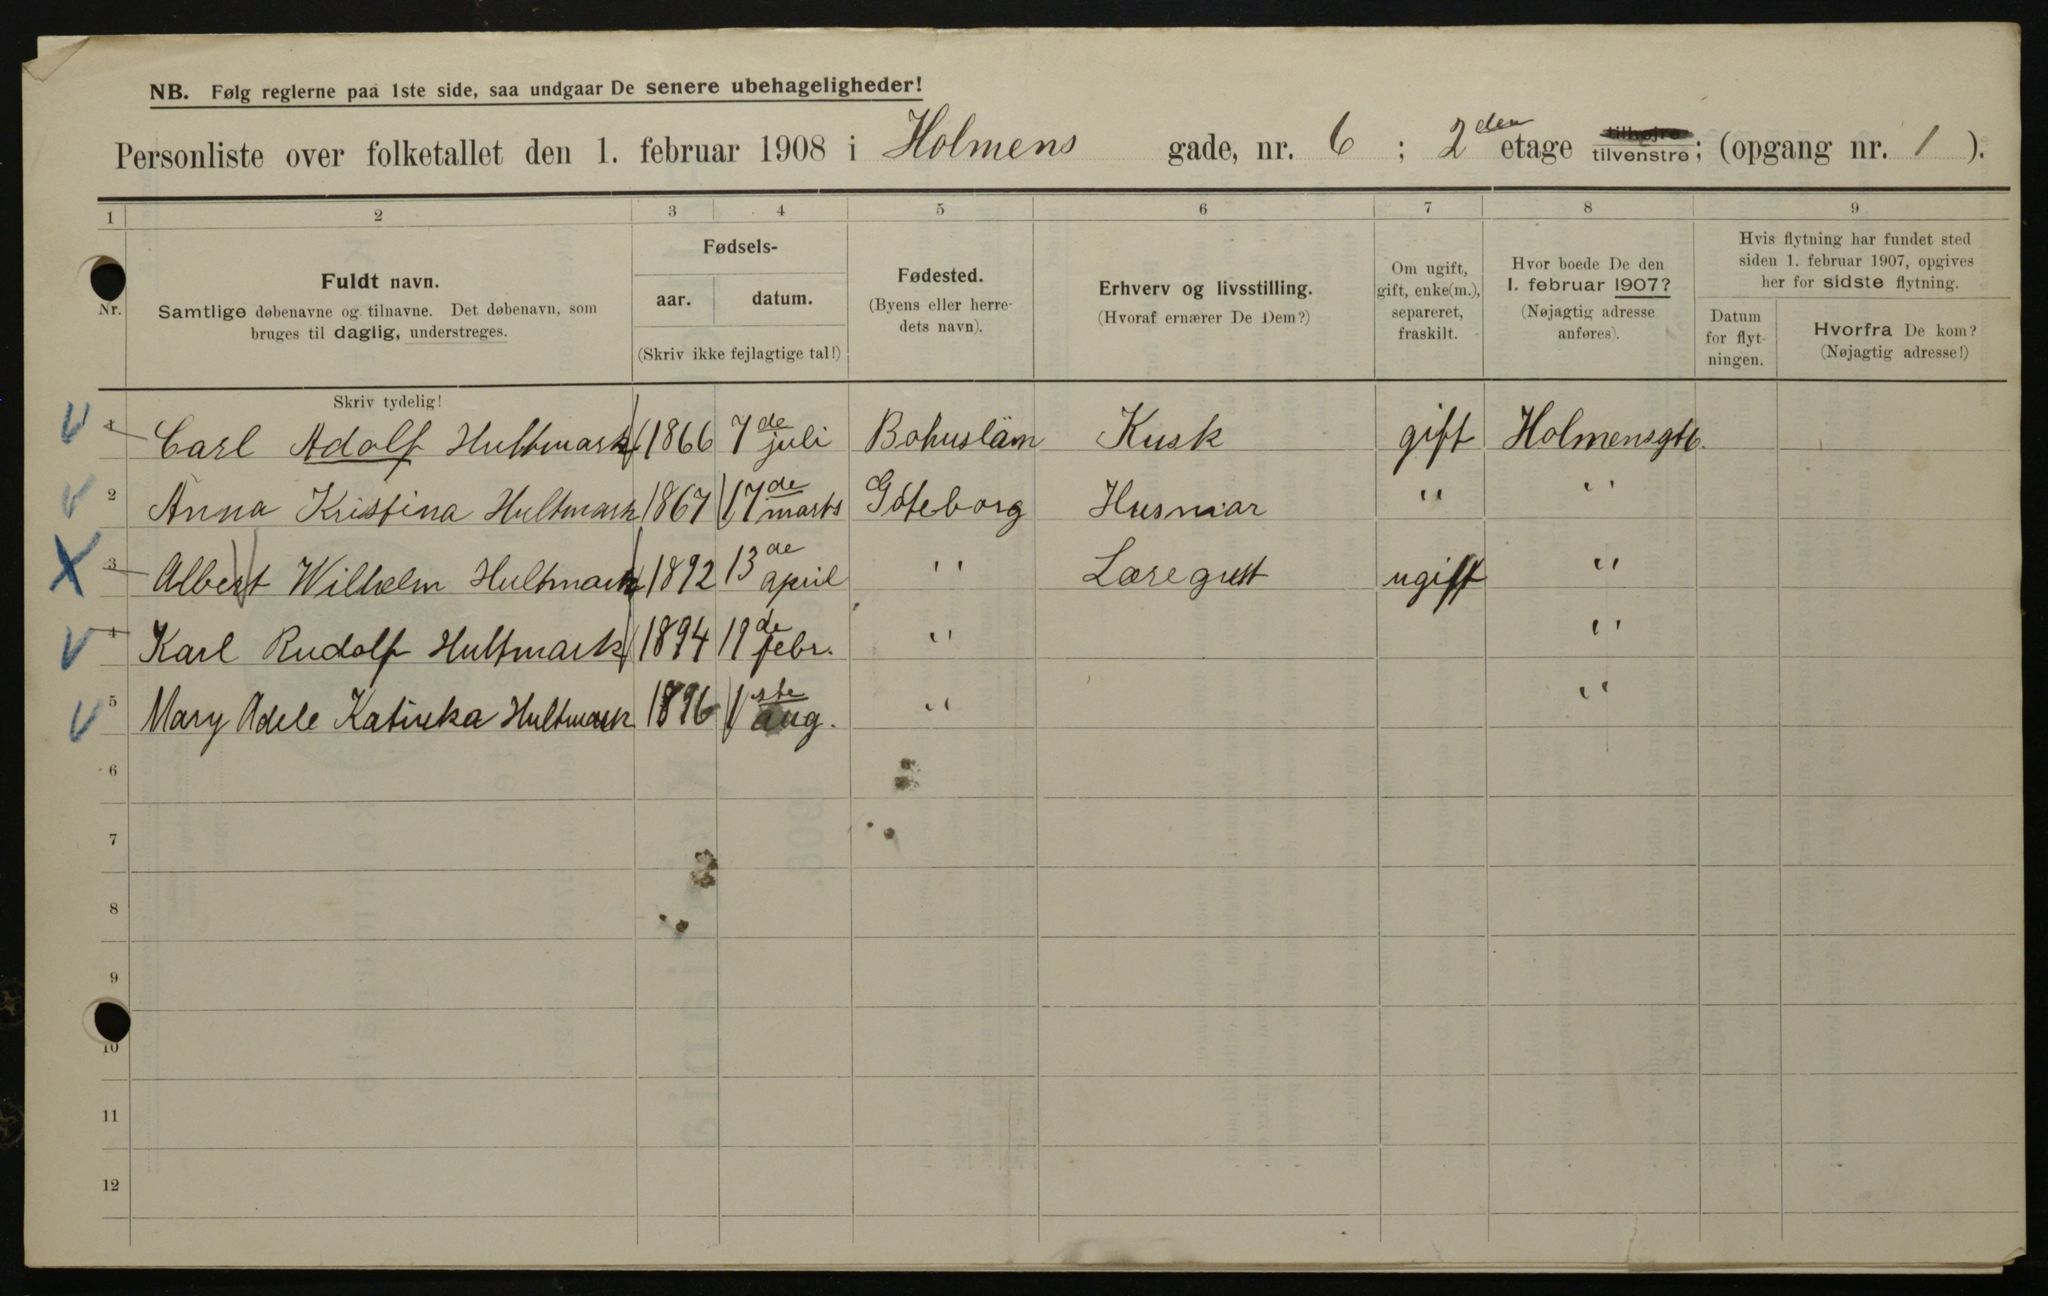 NB. Følg reglerne paa 1ste side, saa undgaar De senere ubehageligheder!
Personliste over folketallet den 1. februar 1908 i Holmens gade, nr. 6 ; 2den etage tilhøjre tilvenstre; (opgang nr. 1 ).
1 2 3 4 5 6 7 8 9
Nr.
Fuldt navn.
Samtlige døbenavne og tilnavne. Det døbenavn, som
bruges til daglig, understreges.
Fødsels-
aar. datum.
(Skriv ikke fejlagtige tal!)
Fødested.
(Byens eller herre-
dets navn).
Erhverv og livsstilling.
(Hvoraf ernærer De Dem?)
Om ugift,
gift, enke(m.),
separeret,
fraskilt.
Hvor boede De den
1. februar 1907?
(Nøjagtig adresse
anføres).
Hvis flytning har fundet sted
siden 1. februar 1907, opgives
her for sidste flytning.
Datum
for flyt-
ningen.
Hvorfra De kom?
(Nøjagtig adresse!)
Skriv tydelig!
1 Carl Adolf Hultmark 1866 7de juli Bohuslän Kusk gift Holmensgt 6.
2 Anna Kristina Hultmark 1867 17de marts Göteborg Husmor " "
3 Albert Wilhelm Hultmark 1892 13de april " Læregutt ugift "
4 Karl Rudolf Hultmark 1894 19de febr. " "
5 Mary Adele Katinka Hultmark 1896 1ste aug. " "
6
7
8
9
10
11
12